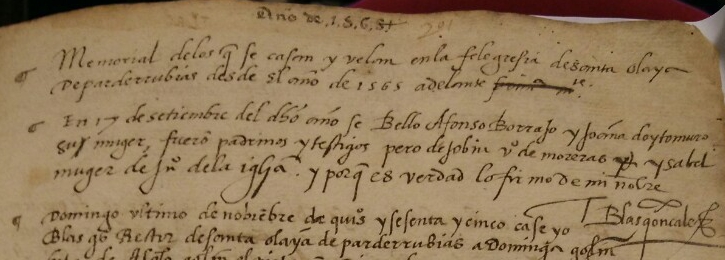 Año de .1.5.6.5+
Memorial delos q̃ se casan y velan enla felegresia desanta olaya
Deparderrubias desde El año de 1565 adelante
En 17 de setiembre del dhõ año se Bello Afonso Borrajo y
su muger, fuerõ padrinos y testigos pero de Jobin vº de moreras y ysabel
muger de Juº dela iglia. y porq̃ es verdad lo firmo de mi nõbre
Blas gonçales
Domingo vltimo de nobiẽbre de quiºs y sesenta y cinco case yo
Blas gºs Retor desanta olaya de parderrubias a Dominga